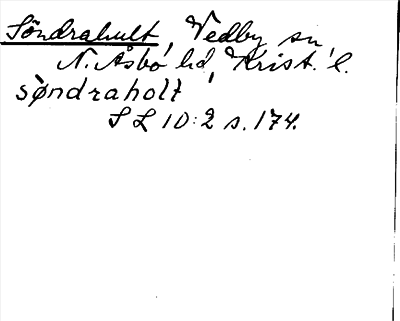 Söndrahult, Vedby sn
N. Åsbo hd, Krist. l.
sø̀ndraholt
S L 10:2 s. 174.